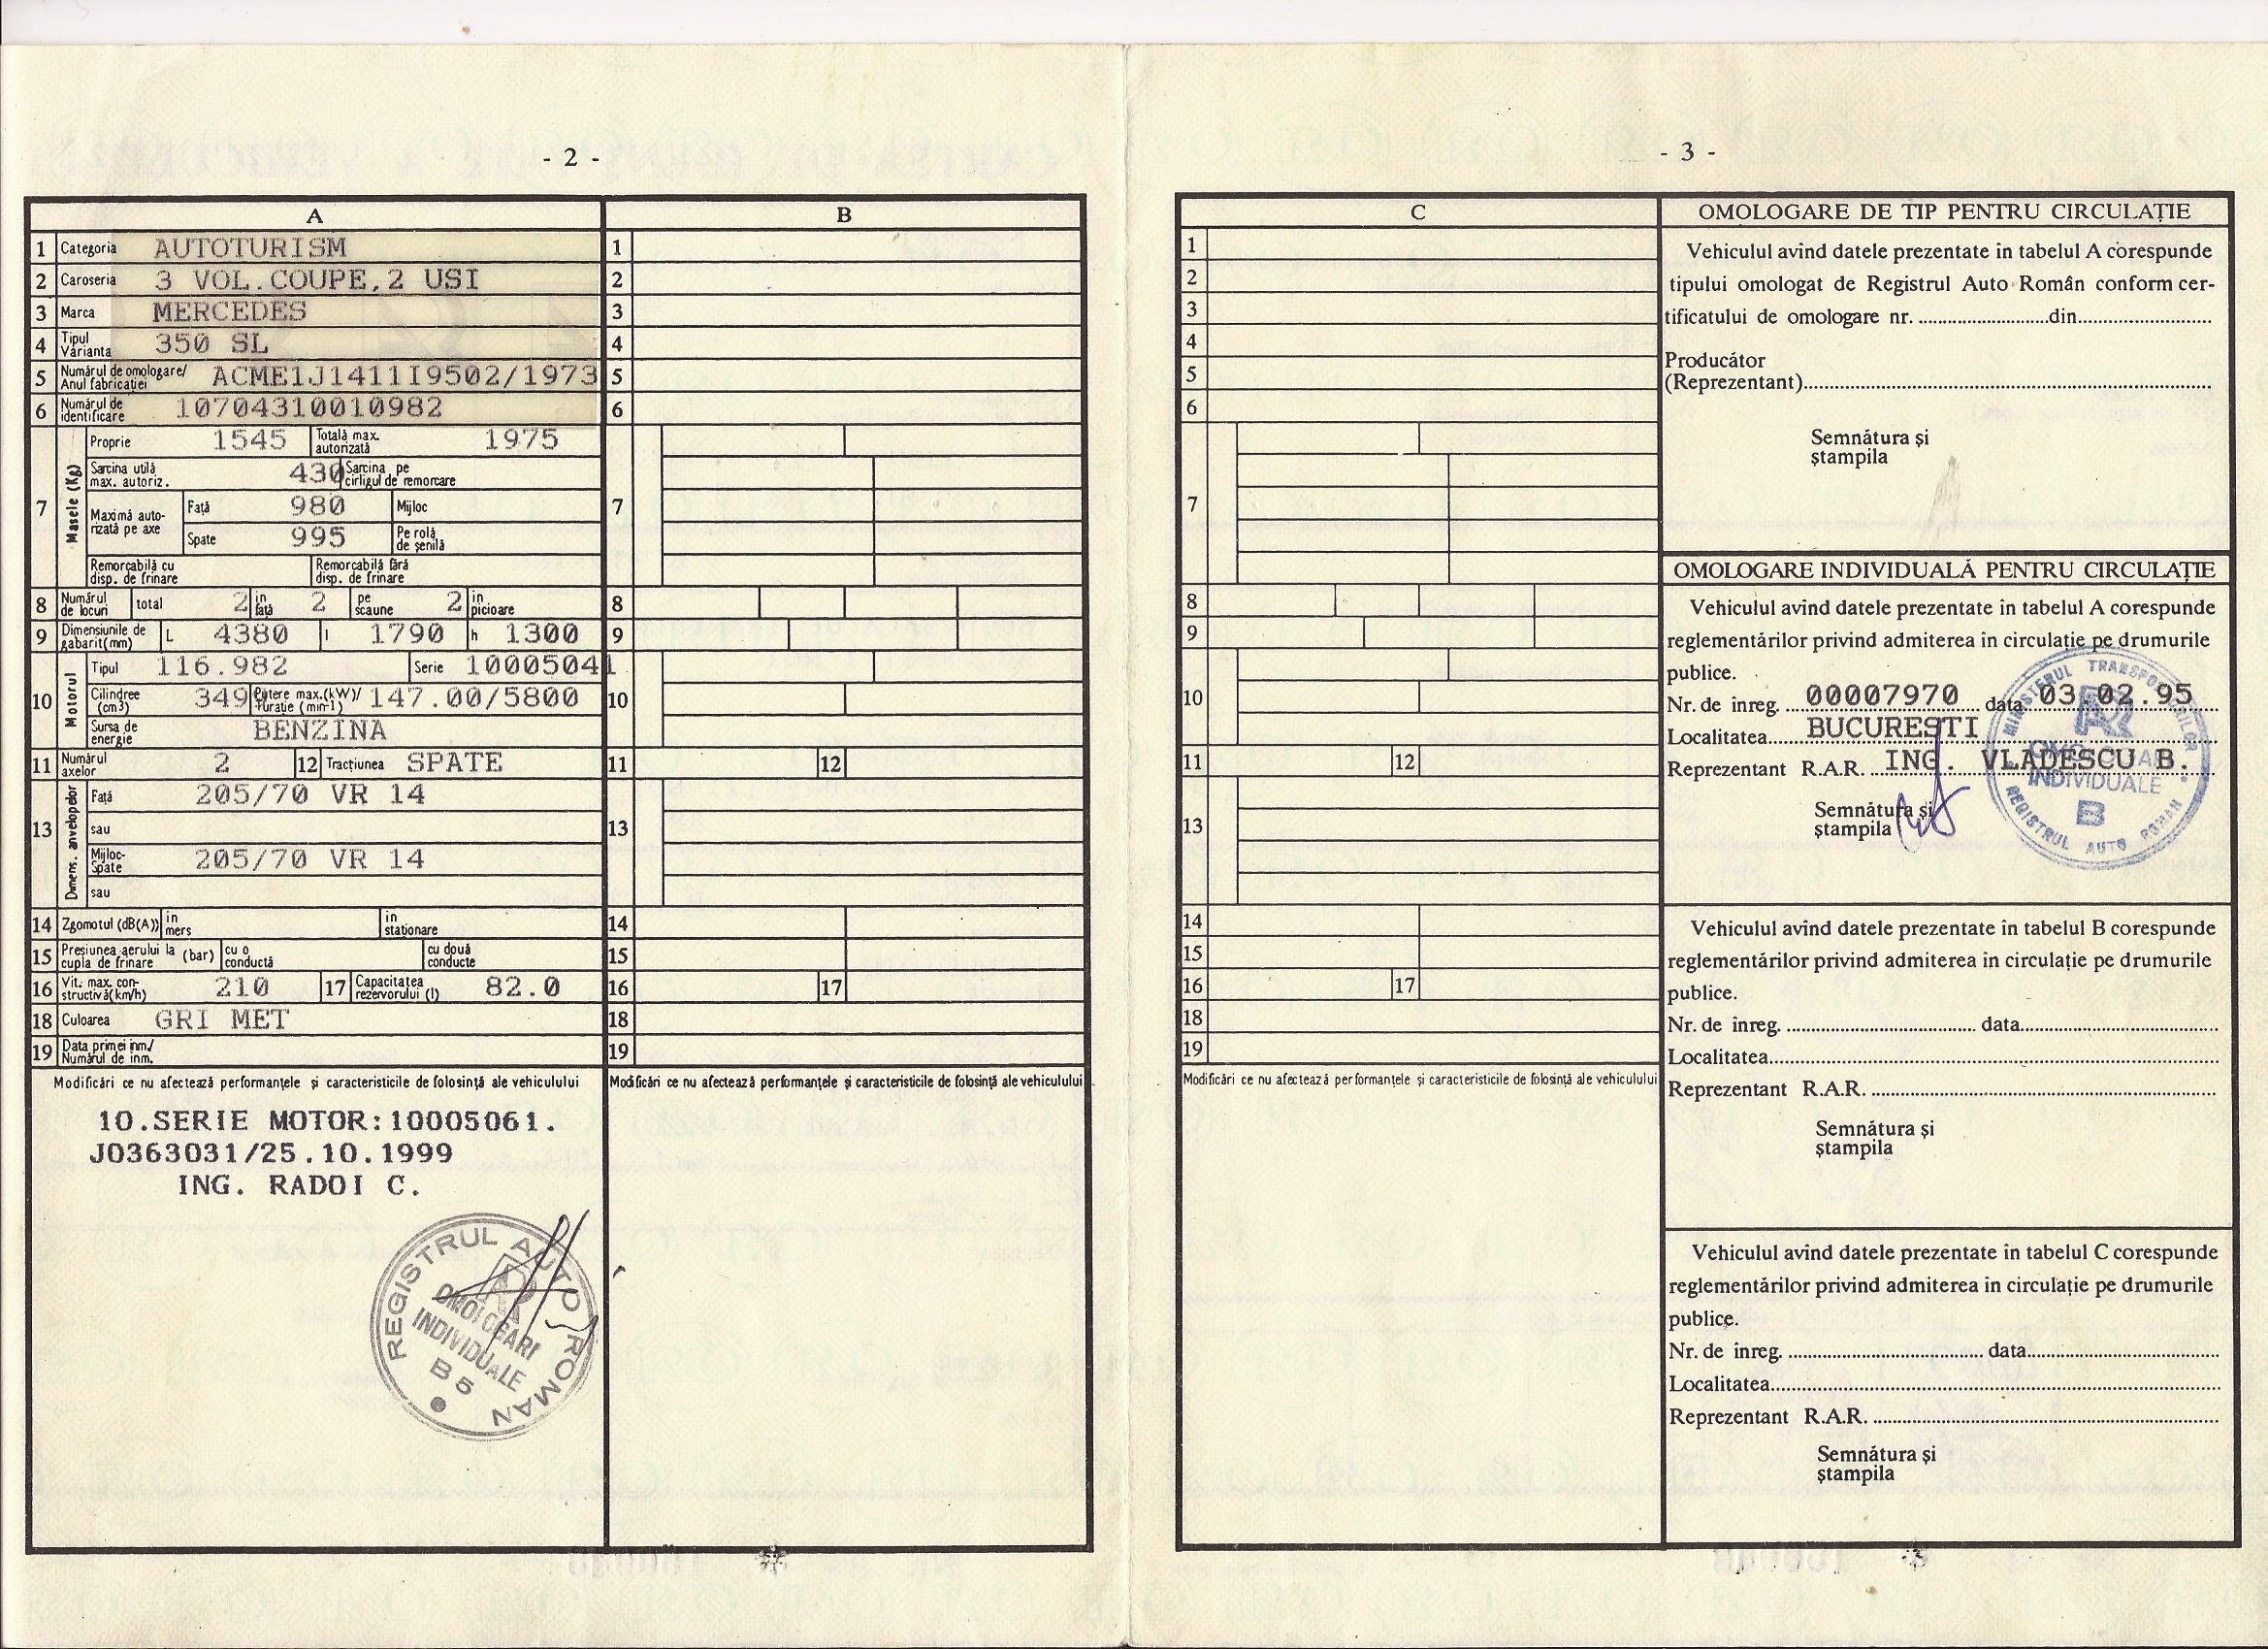 - 2 -
A
B
1 Categoria AUTOTURISM
2 Caroseria 3 VOL.COUPE,2 USI
3 Marca MERCEDES
4 Tipul Varianta 350 SL
5 Numărul de omologare/ Anul fabricației ACME1J1411I9502/1973
6 Numărul de identificare 10704310010982
7 Masele (Kg)
Proprie 1545 Totală max. autorizată 1975
Sarcina utilă max. autoriz. 430 Sarcina pe cîrligul de remorcare
Maximă autorizată pe axe Față 980 Mijloc
Spate 995 Pe rolă de șenilă
Remorcabilă cu disp. de frînare Remorcabilă fără disp. de frînare
8 Numărul de locuri total 2 în față 2 pe scaune 2 în picioare
9 Dimensiunile de gabarit(mm) L 4380 l 1790 h 1300
10 Motorul
Tipul 116.982 Serie 10005041
Cilindree (cm3) 349 Putere max.(kW)/ Turație (min-1) 147.00/5800
Sursa de energie BENZINA
11 Numărul axelor 2 12 Tracțiunea SPATE
13 Dimens. anvelopelor
Față 205/70 VR 14
sau
Mijloc-Spate 205/70 VR 14
sau
14 Zgomotul (dB(A)) în mers în staționare
15 Presiunea aerului la cupla de frînare (bar) cu o conductă cu două conducte
16 Vit. max. constructivă(km/h) 210 17 Capacitatea rezervorului (l) 82.0
18 Culoarea GRI MET
19 Data primei înm./ Numărul de înm.
Modificări ce nu afectează performanțele și caracteristicile de folosință ale vehiculului
10.SERIE MOTOR:10005061.
J0363031/25.10.1999
ING. RADOI C.
REGISTRUL AUTO ROMAN
OMOLOGARI
INDIVIDUALE
B 5
1
2
3
4
5
6
7
8
9
10
11 12
13
14
15
16 17
18
19
Modificări ce nu afectează performanțele și caracteristicile de folosință ale vehiculului
- 3 -
C
1
2
3
4
5
6
7
8
9
10
11 12
13
14
15
16 17
18
19
Modificări ce nu afectează performanțele și caracteristicile de folosință ale vehiculului
OMOLOGARE DE TIP PENTRU CIRCULAȚIE
Vehiculul avînd datele prezentate în tabelul A corespunde
tipului omologat de Registrul Auto Român conform cer-
tificatului de omologare nr. ........ din........
Producător
(Reprezentant)........
Semnătura și
ștampila
OMOLOGARE INDIVIDUALĂ PENTRU CIRCULAȚIE
Vehiculul avînd datele prezentate în tabelul A corespunde
reglementărilor privind admiterea în circulație pe drumurile
publice.
Nr. de înreg. 00007970 data 03.02.95
Localitatea BUCURESTI
Reprezentant R.A.R. ING. VLADESCU B.
Semnătura și
ștampila
MINISTERUL TRANSPORTURILOR
INDIVIDUALE
B
REGISTRUL AUTO ROMAN
Vehiculul avînd datele prezentate în tabelul B corespunde
reglementărilor privind admiterea în circulație pe drumurile
publice.
Nr. de înreg. ........ data........
Localitatea........
Reprezentant R.A.R. ........
Semnătura și
ștampila
Vehiculul avînd datele prezentate în tabelul C corespunde
reglementărilor privind admiterea în circulație pe drumurile
publice.
Nr. de înreg. ........ data........
Localitatea........
Reprezentant R.A.R. ........
Semnătura și
ștampila